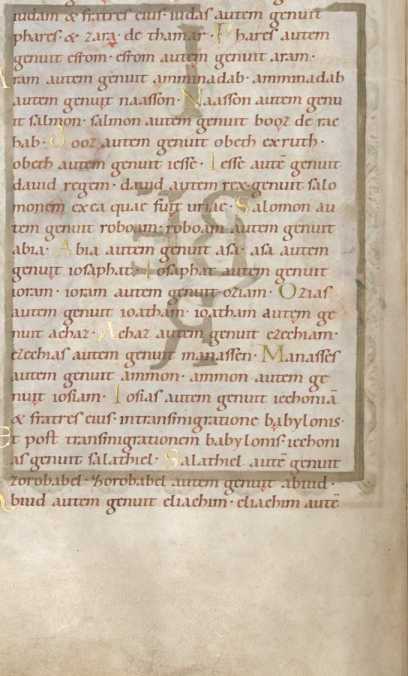 iudam & fratres eius· iudas autem genuit
phares· & zara· de thamar· Phares autem
genuit esrom· esrom autem genuit aram·
Aram autem genuit amminadab· amminadab
autem genuit naasson· Naasson autem genu
it salmon· salmon autem genuit booz de rac
hab· Booz autem genuit obeth ex ruth·
obeth autem genuit iesse· Iesse autē genuit
dauid regem· dauid autem rex genuit salo
monem ex ea quae fuit uriae· Salomon au
tem genuit roboam· roboam autem genuit
abia· Abia autem genuit asa· asa autem
genuit iosaphat· Iosaphat autem genuit
ioram· ioram autem genuit oziam· Ozias
autem genuit ioatham· ioatham autem ge
nuit achaz· Achaz autem genuit ezechiam·
ezechias autem genuit manassen· Manasses
autem genuit ammon· ammon autem ge
nuit iosiam· Iosias autem genuit iechoniā
& fratres eius· in transmigratione babylonis·
Et post transmigrationem babylonis· iechoni
as genuit salathiel· Salathiel autē genuit
zorobabel· Zorobabel autem genuit abiud·
Abiud autem genuit eliachim· eliachim autē